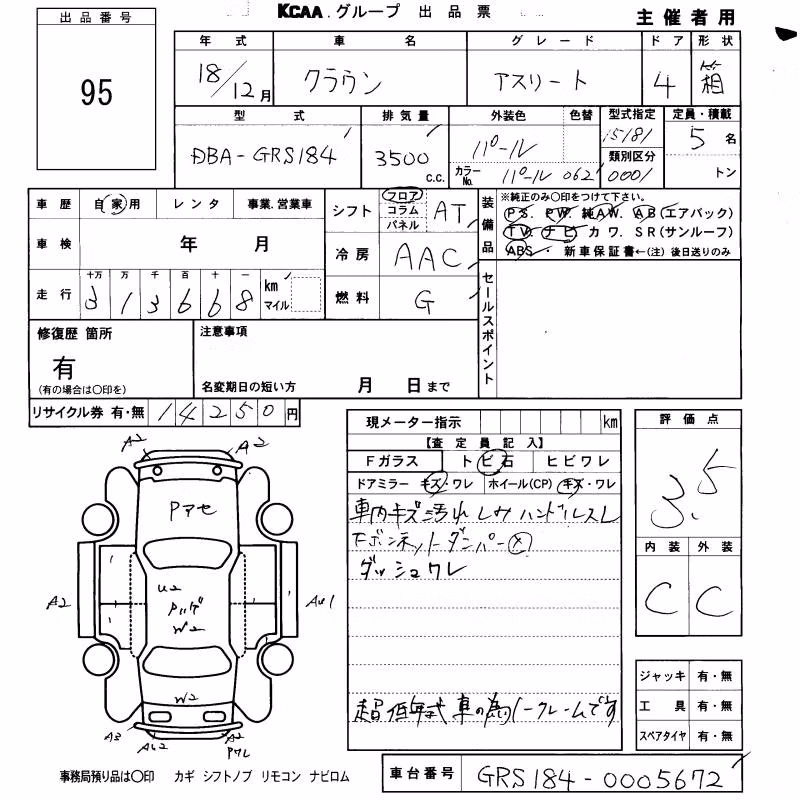 KCAA. グループ 出品票
主催者用
出品番号
95
年式 車名 グレード ドア 形状
18/12月 クラウン アスリート 4 箱
型式 排気量 外装色 色替 型式指定 定員・積載
DBA-GRS184 3500 c.c. パール 15181 5 名
類別区分
カラーNo. パール 062 0001 トン
車歴 自家用 レンタ 事業.営業車
シフト フロア コラム パネル AT
装備品
※純正のみ○印をつけて下さい。
PS. PW. 純AW. AB(エアバック)
TV. ナビ カワ. SR(サンルーフ)
ABS・ 新車保証書←(注) 後日送りのみ
車検 年 月
冷房 AAC
走行 十万 万 千 百 十 一
3 1 3 6 6 8 km マイル
燃料 G
セールスポイント
修復歴 箇所
有
(有の場合は○印を)
注意事項
名変期日の短い方 月 日まで
リサイクル券 有・無 14250 円
現メーター指示 km
【査定員記入】
Fガラス トビ石 ヒビワレ
ドアミラー キズ・ワレ ホイール(CP) キズ・ワレ
車内キズ汚れ シワ ハンドルスレ
ボンネットダンパー
ダッシュワレ
超低年式車の為ノークレームです
評価点
3.5
内装 外装
C C
A2 A2
Pアセ
U2
A2 AU1
W2
W2
A3 AU2 A2
Pワレ
ジャッキ 有・無
工具 有・無
スペアタイヤ 有・無
事務局預り品は○印 カギ シフトノブ リモコン ナビロム
車台番号 GRS184-0005672